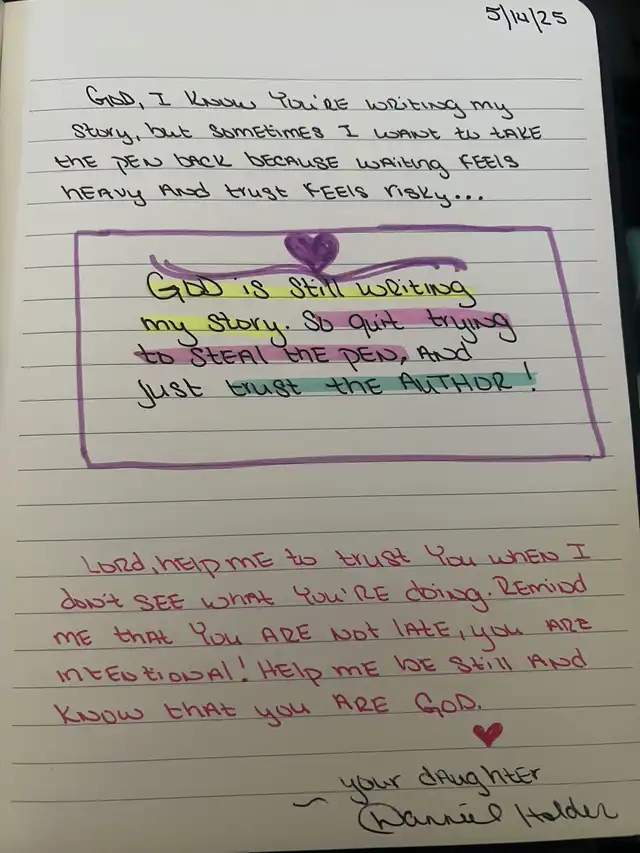 5/14/25
GOD, I KNOW YOU'RE WRITING MY
STORY, but SOMETIMES I WANT to tAKE
the PEN bACK BECAUSE WAITING FEELS
HEAVY AND trust FEELS risky...
GOD is still WRITING
my story. SO quit trying
to STEAL thE PEN, AND
just trust thE AUTHOR!
LORD, HELP ME to trust YOU WHEN I
don't SEE WHAT YOU'RE doing. REMIND
ME thAt YOU ARE NOt LATE, YOU ARE
INTENTIONAL! HELP ME bE StILL AND
KNOW thAt YOU ARE GOD.
~ your dAughtER
Danniel Holder